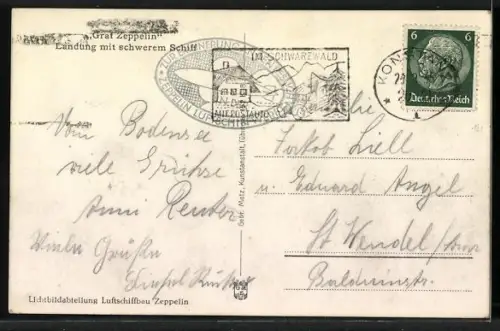 „Graf Zeppelin"
Landung mit schwerem Schiff
ZUR ERINNERUNG
ZEPPELIN LUFTSCHIFF
IM SCHWARZWALD
MIT POSTAUTO
KONST
6 6
Deutsches Reich
Vom Bodensee
viele Grüße
Anni Reuter
Viele Grüße
Jakob Liell
u. Eduard Angel
St Wendel /Saar
Balduinstr.
Gebr. Metz, Kunstanstalt, Tübingen
Lichtbildabteilung Luftschiffbau Zeppelin